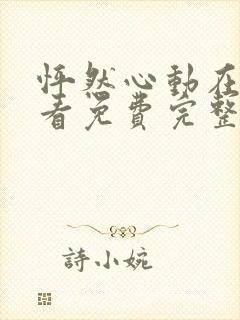 怦然心動在
看免費完整
詩小婉